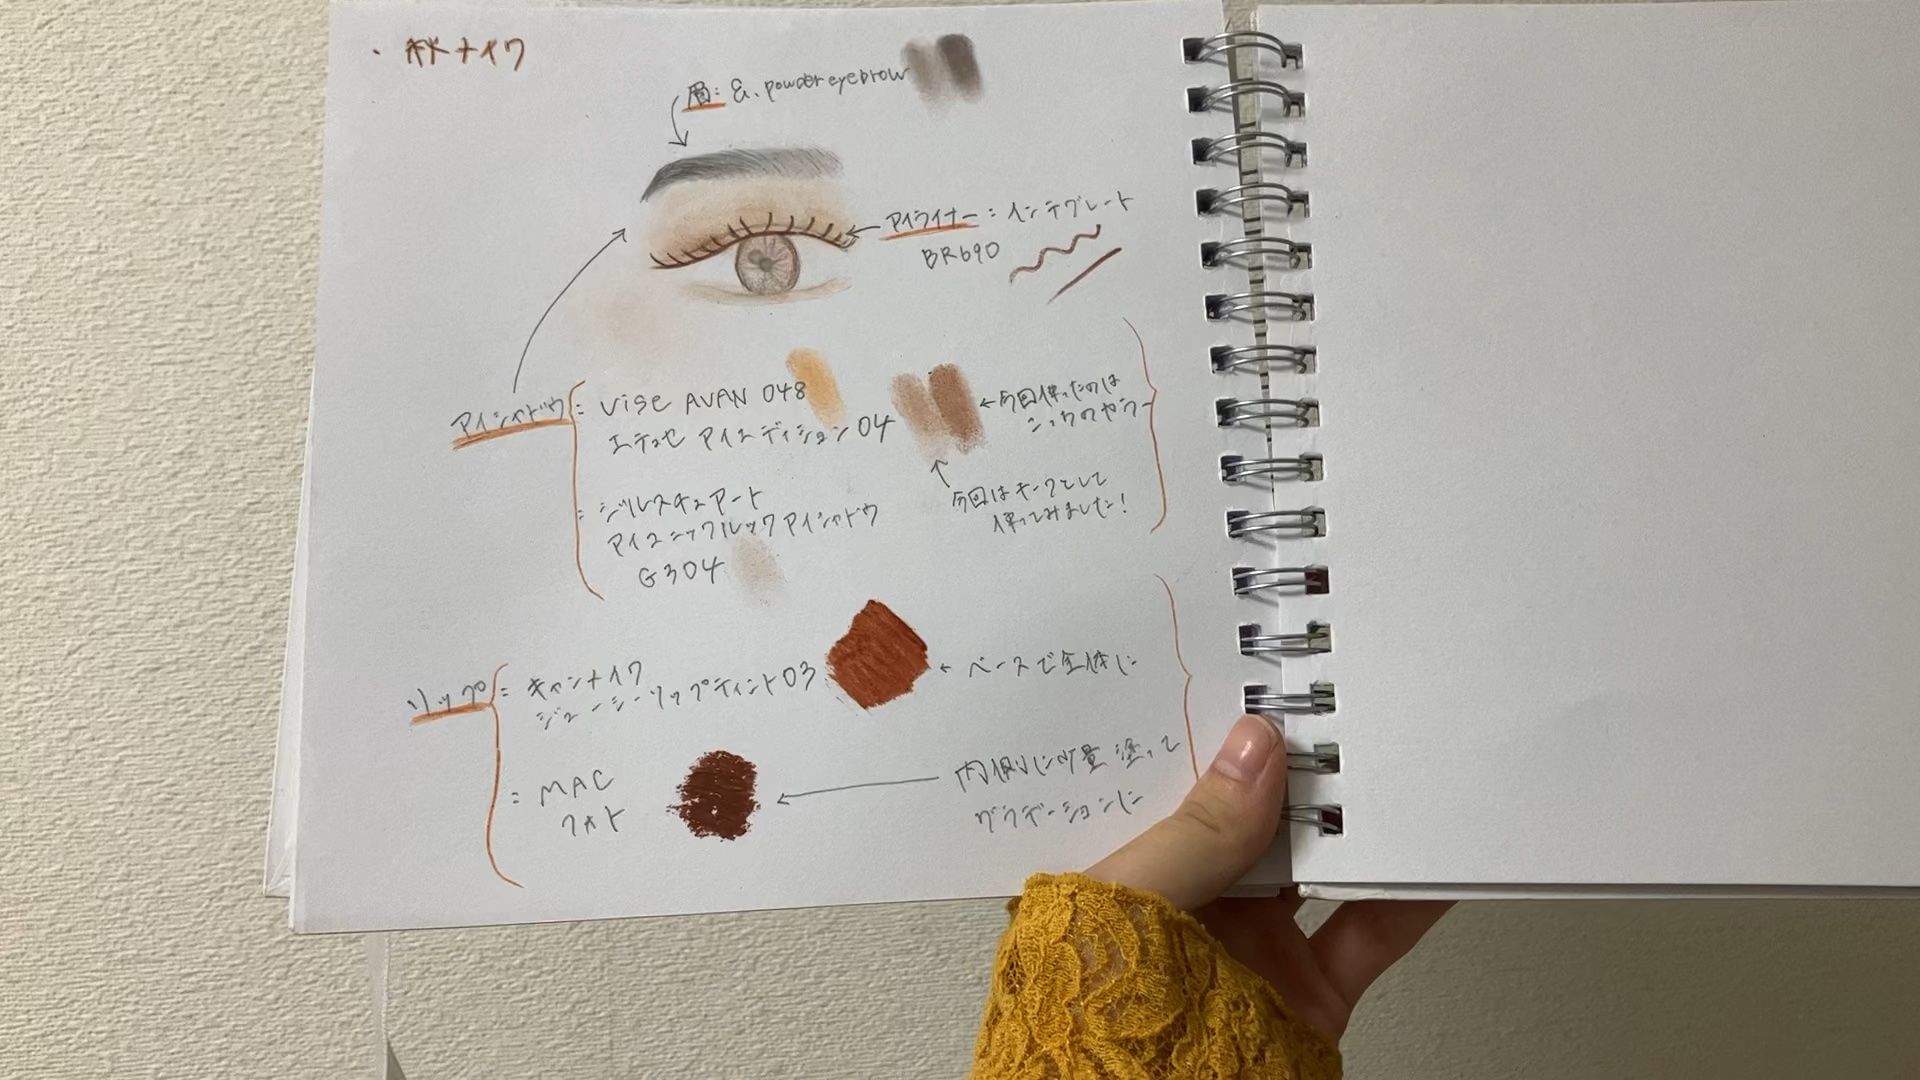 ・秋メイク
眉：&. powder eyebrow
アイライナー：インテグレート
BR690
アイシャドウ：Visé AVAN 048
エテュセ アイエディション04
←今回使ったのは
こっちのカラー
今回はチークとして
使ってみました！
：ジルスチュアート
アイコニックルックアイシャドウ
G304
リップ：キャンメイク
ジューシーリップティント03
←ベースで全体に
：MAC
マット
内側に少量塗って
グラデーションに